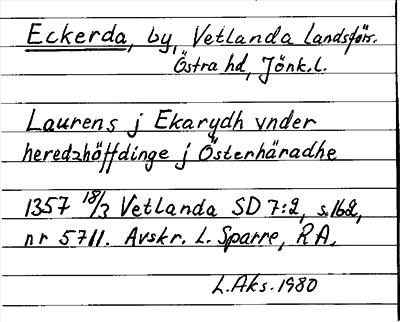 Eckerda, by, Vetlanda landsförs.
Östra hd, Jönk.l.
Laurens j Ekarydh vnder
heredzhöffdinge j Österhäradhe
1357 18/3 Vetlanda SD 7:2, s.162,
nr 5711. Avskr. L. Sparre, RA.
L.Aks. 1980